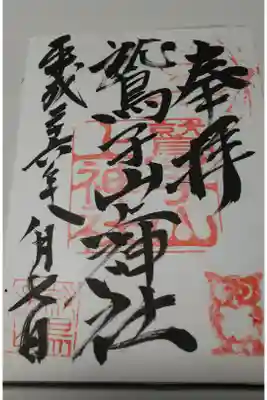 奉拝
鷲子山上神社
平成二十六年八月七日
鷲子山
上神社